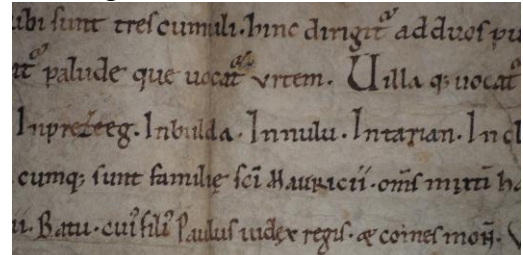 ubi sunt tres cumuli. hinc dirigit᷑ ad duos pu
it᷑ palude que uocat᷑ vrtem. Uilla q; uocat᷑
Inpreteeg. Inbulda. Innulu. Intarian. In cl
cumq; sunt familię sc̄i Mauricii. om̄s mixti h
ii. Batu. cui᾽ fili᾽ Paulus iudex regis. & comes mon̄.